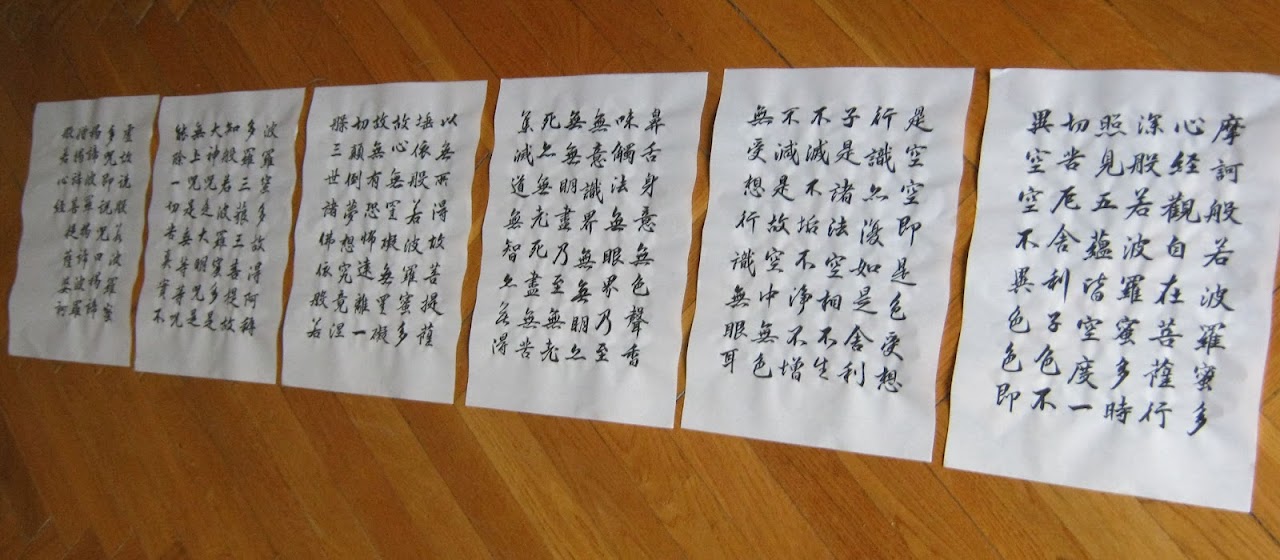 摩訶般若波羅蜜多
心経觀自在菩薩行
深般若波羅蜜多時
照見五蘊皆空度一
切苦厄舍利子色不
異空空不異色色即
是空空即是色受想
行識亦復如是舍利
子是諸法空相不生
不滅不垢不淨不增
不減是故空中無色
無受想行識無眼耳
鼻舌身意無色聲香
味觸法無眼界乃至
無意識界無無明亦
無無明盡乃至無老
死亦無老死盡無苦
集滅道無智亦無得
以無所得故菩提薩
埵依般若波羅蜜多
故心無罣礙無罣礙
故無有恐怖遠離一
切顛倒夢想究竟涅
槃三世諸佛依般若
波羅蜜多故得阿耨
多羅三藐三菩提故
知般若波羅蜜多是
大神咒是大明咒是
無上咒是無等等咒
能除一切苦真實不
虛故說般若波羅蜜
多咒即說咒曰揭諦
揭諦波羅揭諦波羅
僧揭諦菩提薩婆訶
般若心経